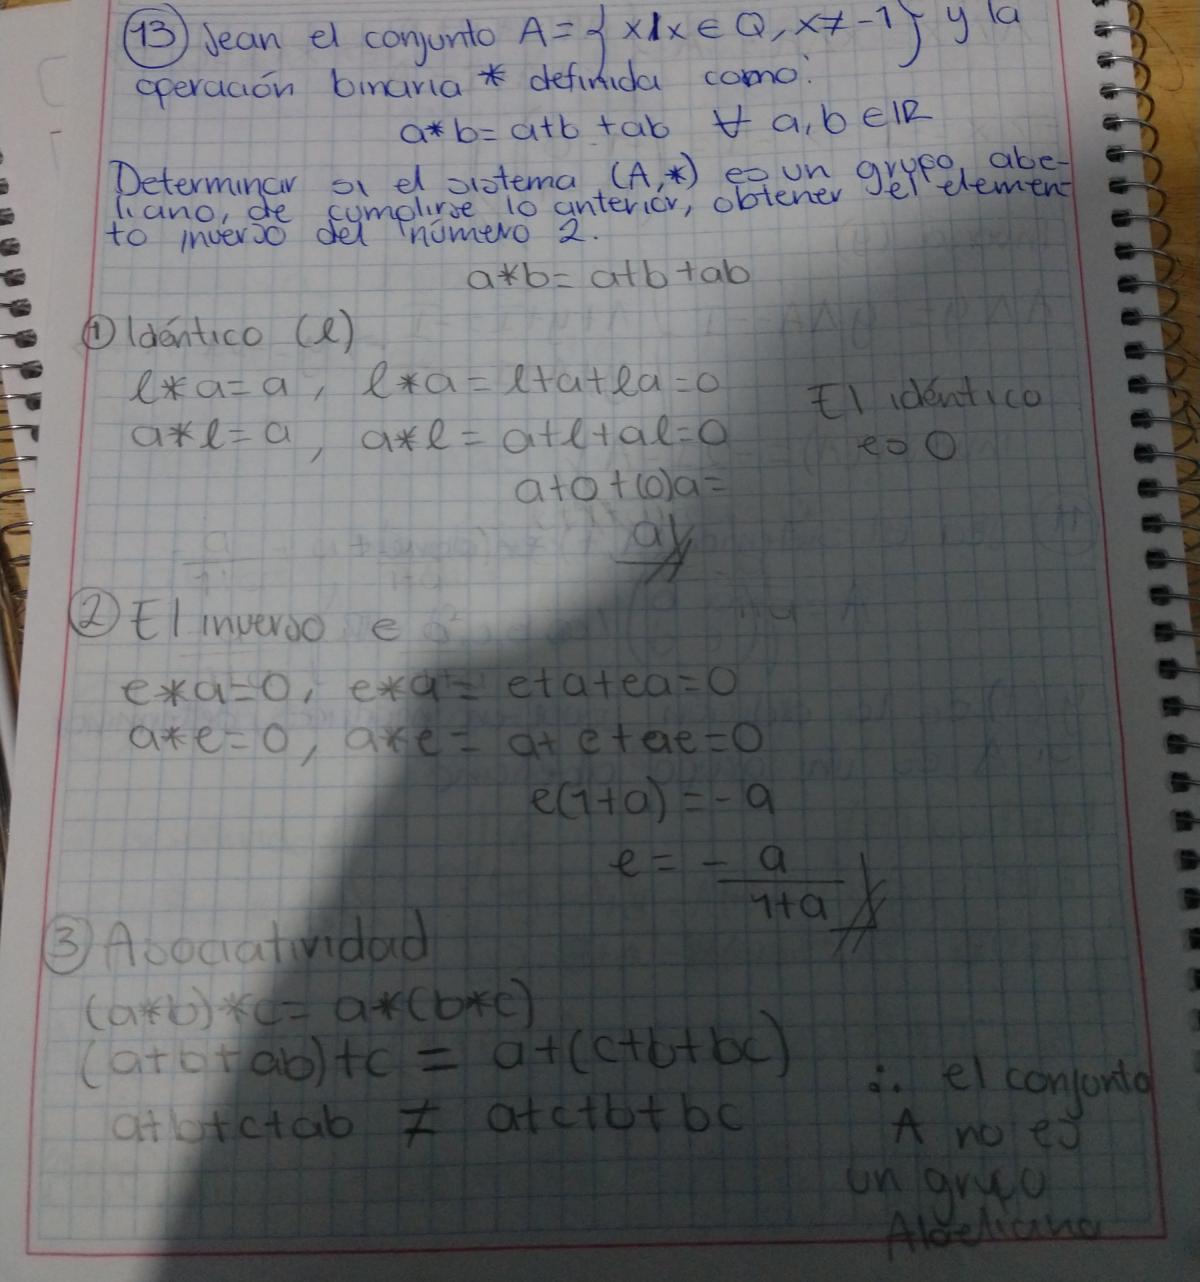 13 Sean el conjunto A = { x | x ∈ Q, x ≠ -1 } y la
operación binaria * definida como:
a*b = a+b+ab ∀ a, b ∈ IR
Determinar si el sistema (A,*) es un grupo abe-
liano, de cumplirse lo anterior, obtener el elemen-
to inverso del número 2.
a*b = a+b+ab
① Idéntico (e)
e*a = a, e*a = e+a+ea = 0
a*e = a, a*e = a+e+ae = 0
a+0+(0)a =
a
El idéntico
es 0
② El inverso e
e*a = 0, e*a = e+a+ea = 0
a*e = 0, a*e = a+e+ae = 0
e(1+a) = -a
e = - a
1+a
③ Asociatividad
(a*b)*c = a*(b*c)
(a+b+ab)+c = a+(c+b+bc)
a+b+c+ab ≠ a+c+b+bc
∴ el conjunto
A no es
un grupo